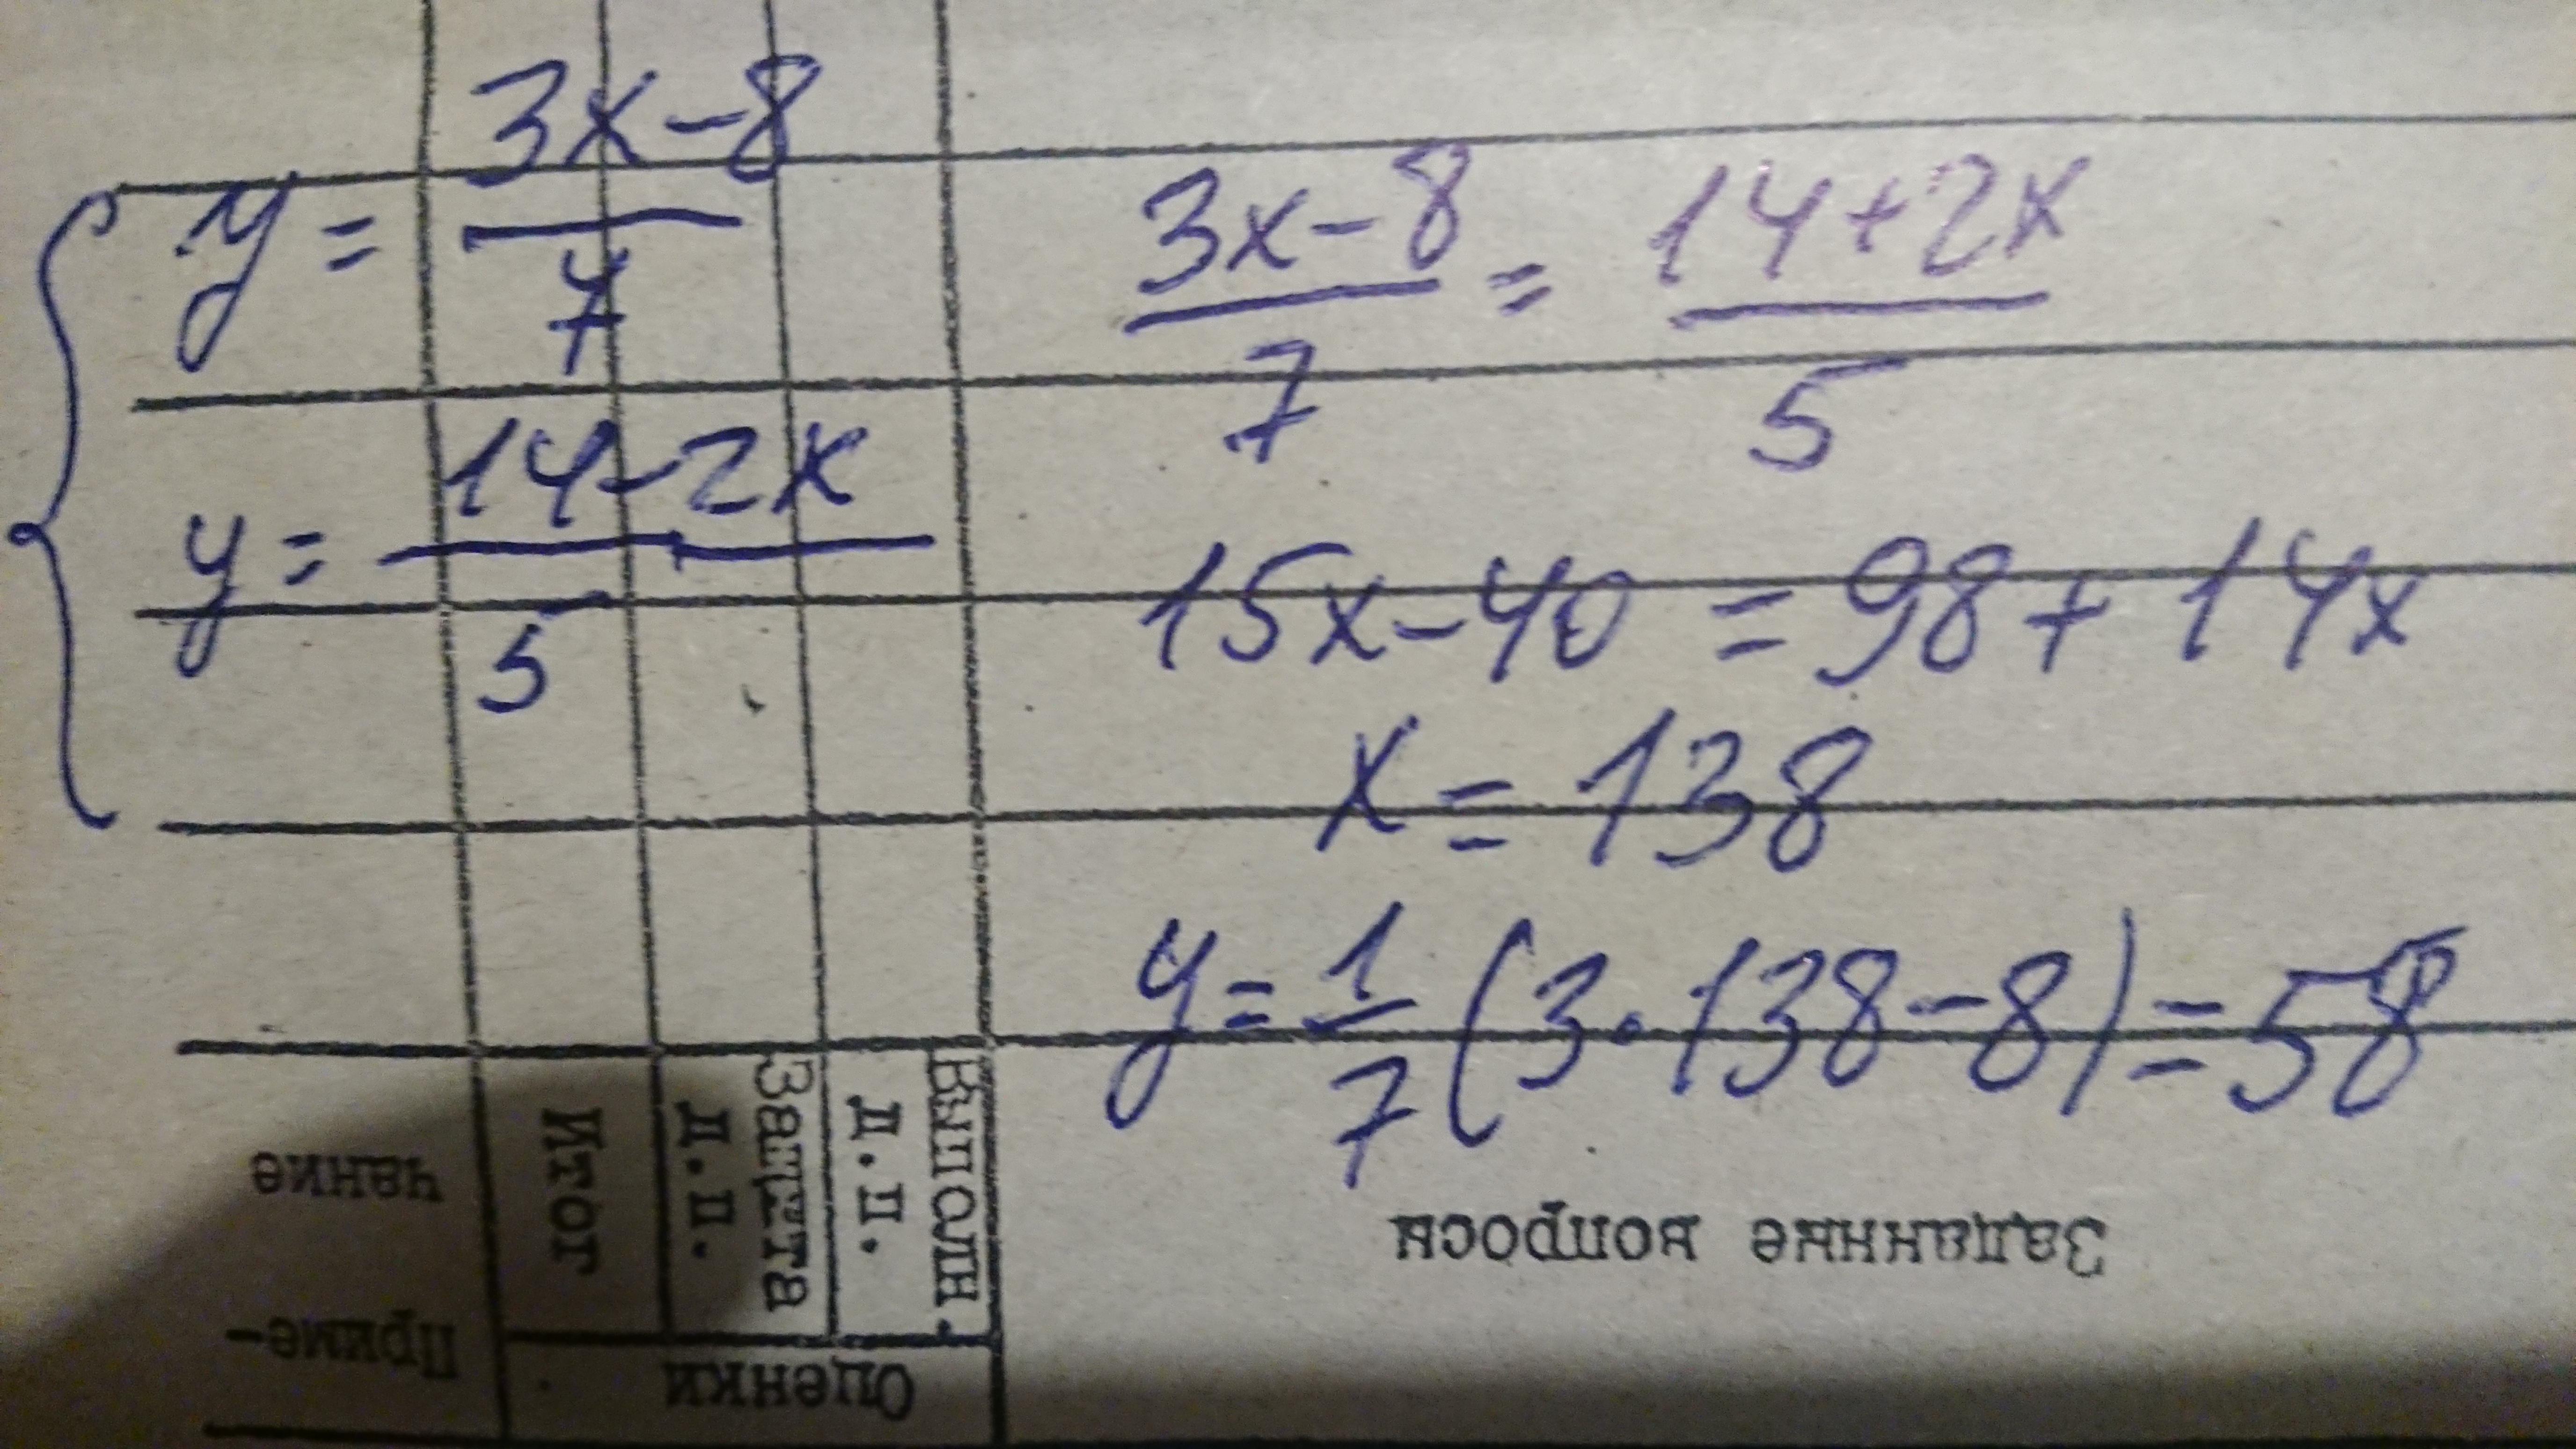 y = 3x-8 / 7
y = 14-2x / 5
3x-8 / 7 = 14+2x / 5
15x-40 = 98+14x
x = 138
y = 1/7 (3·138-8) = 58
Заданные вопросы
Выполн.
Д.П.
Защита
Д.П.
Итог
Оценки
Приме-
чание